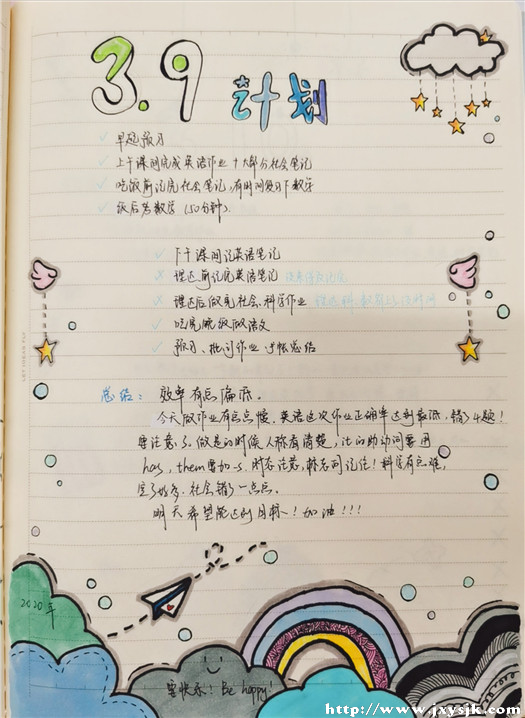 3.9 计划
早起预习
上午课间完成英语作业 十大部分社会笔记
吃饭前记完社会笔记,有时间复习下数学
饭后考数学(50分钟).
下午课间记英语笔记
理达前记完英语笔记
理达后做完社会、科学作业
吃完晚饭做语文
预习、批订作业、进行总结
总结: 效率有点偏低.
今天做作业有点点慢,英语这次作业正确率达到最低,错了4题!
要注意了,做题的时候人称看清楚,it的助动词要用
has,them要加-s.时态注意,标志词记住!科学有点难,
空了好多.社会错了一点点.
明天希望能达到目标~!加油!!!
2020年
要快乐! Be happy!
http://www.jxysjk.com/